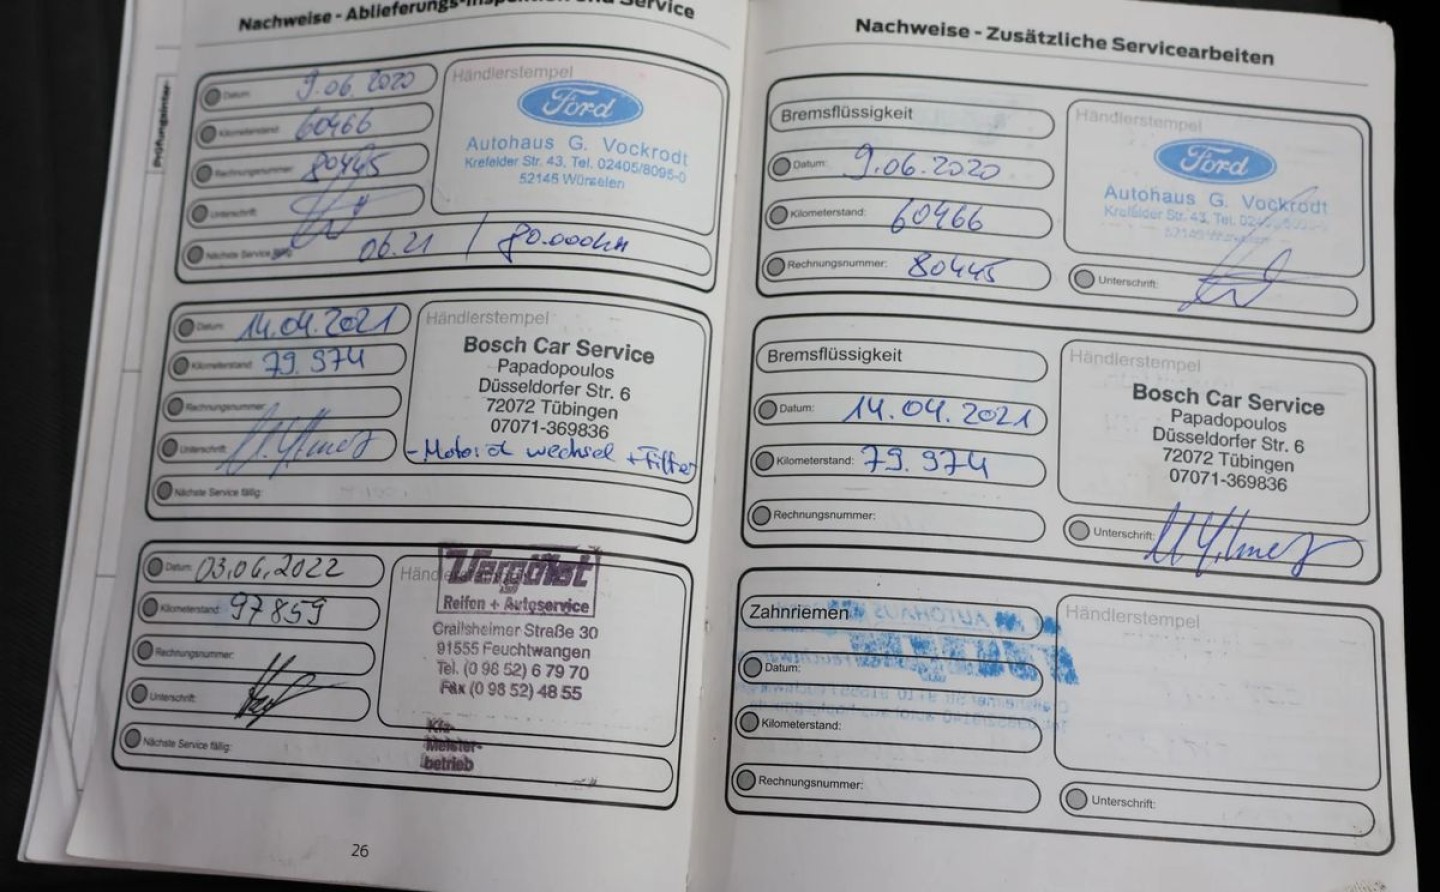 Nachweise - Ablieferungs-Inspektion und Service
Prüfungsinter-
Datum: 9.06.2020
Kilometerstand: 60466
Rechnungsnummer: 80445
Unterschrift:
Nächste Service fällig: 06.21 / 80.000km
Händlerstempel
Ford
Autohaus G. Vockrodt
Krefelder Str. 43, Tel. 02405/8095-0
52146 Würselen
Datum: 14.04.2021
Kilometerstand: 79.974
Rechnungsnummer:
Unterschrift:
Nächste Service fällig:
Händlerstempel
Bosch Car Service
Papadopoulos
Düsseldorfer Str. 6
72072 Tübingen
07071-369836
- Motoröl wechsel + Filter
Datum: 03.06.2022
Kilometerstand: 97859
Rechnungsnummer:
Unterschrift:
Nächste Service fällig:
Reifen + Autoservice
Crailsheimer Straße 30
91555 Feuchtwangen
Tel. (0 98 52) 6 79 70
Fax (0 98 52) 48 55
Kfz-
Meister-
betrieb
26
Nachweise - Zusätzliche Servicearbeiten
Bremsflüssigkeit
Datum: 9.06.2020
Kilometerstand: 60466
Rechnungsnummer: 80445
Händlerstempel
Ford
Autohaus G. Vockrodt
Krefelder Str. 43, Tel.
Unterschrift:
Bremsflüssigkeit
Datum: 14.04.2021
Kilometerstand: 79.974
Rechnungsnummer:
Händlerstempel
Bosch Car Service
Papadopoulos
Düsseldorfer Str. 6
72072 Tübingen
07071-369836
Unterschrift:
Zahnriemen
Datum:
Kilometerstand:
Rechnungsnummer:
Händlerstempel
Unterschrift: